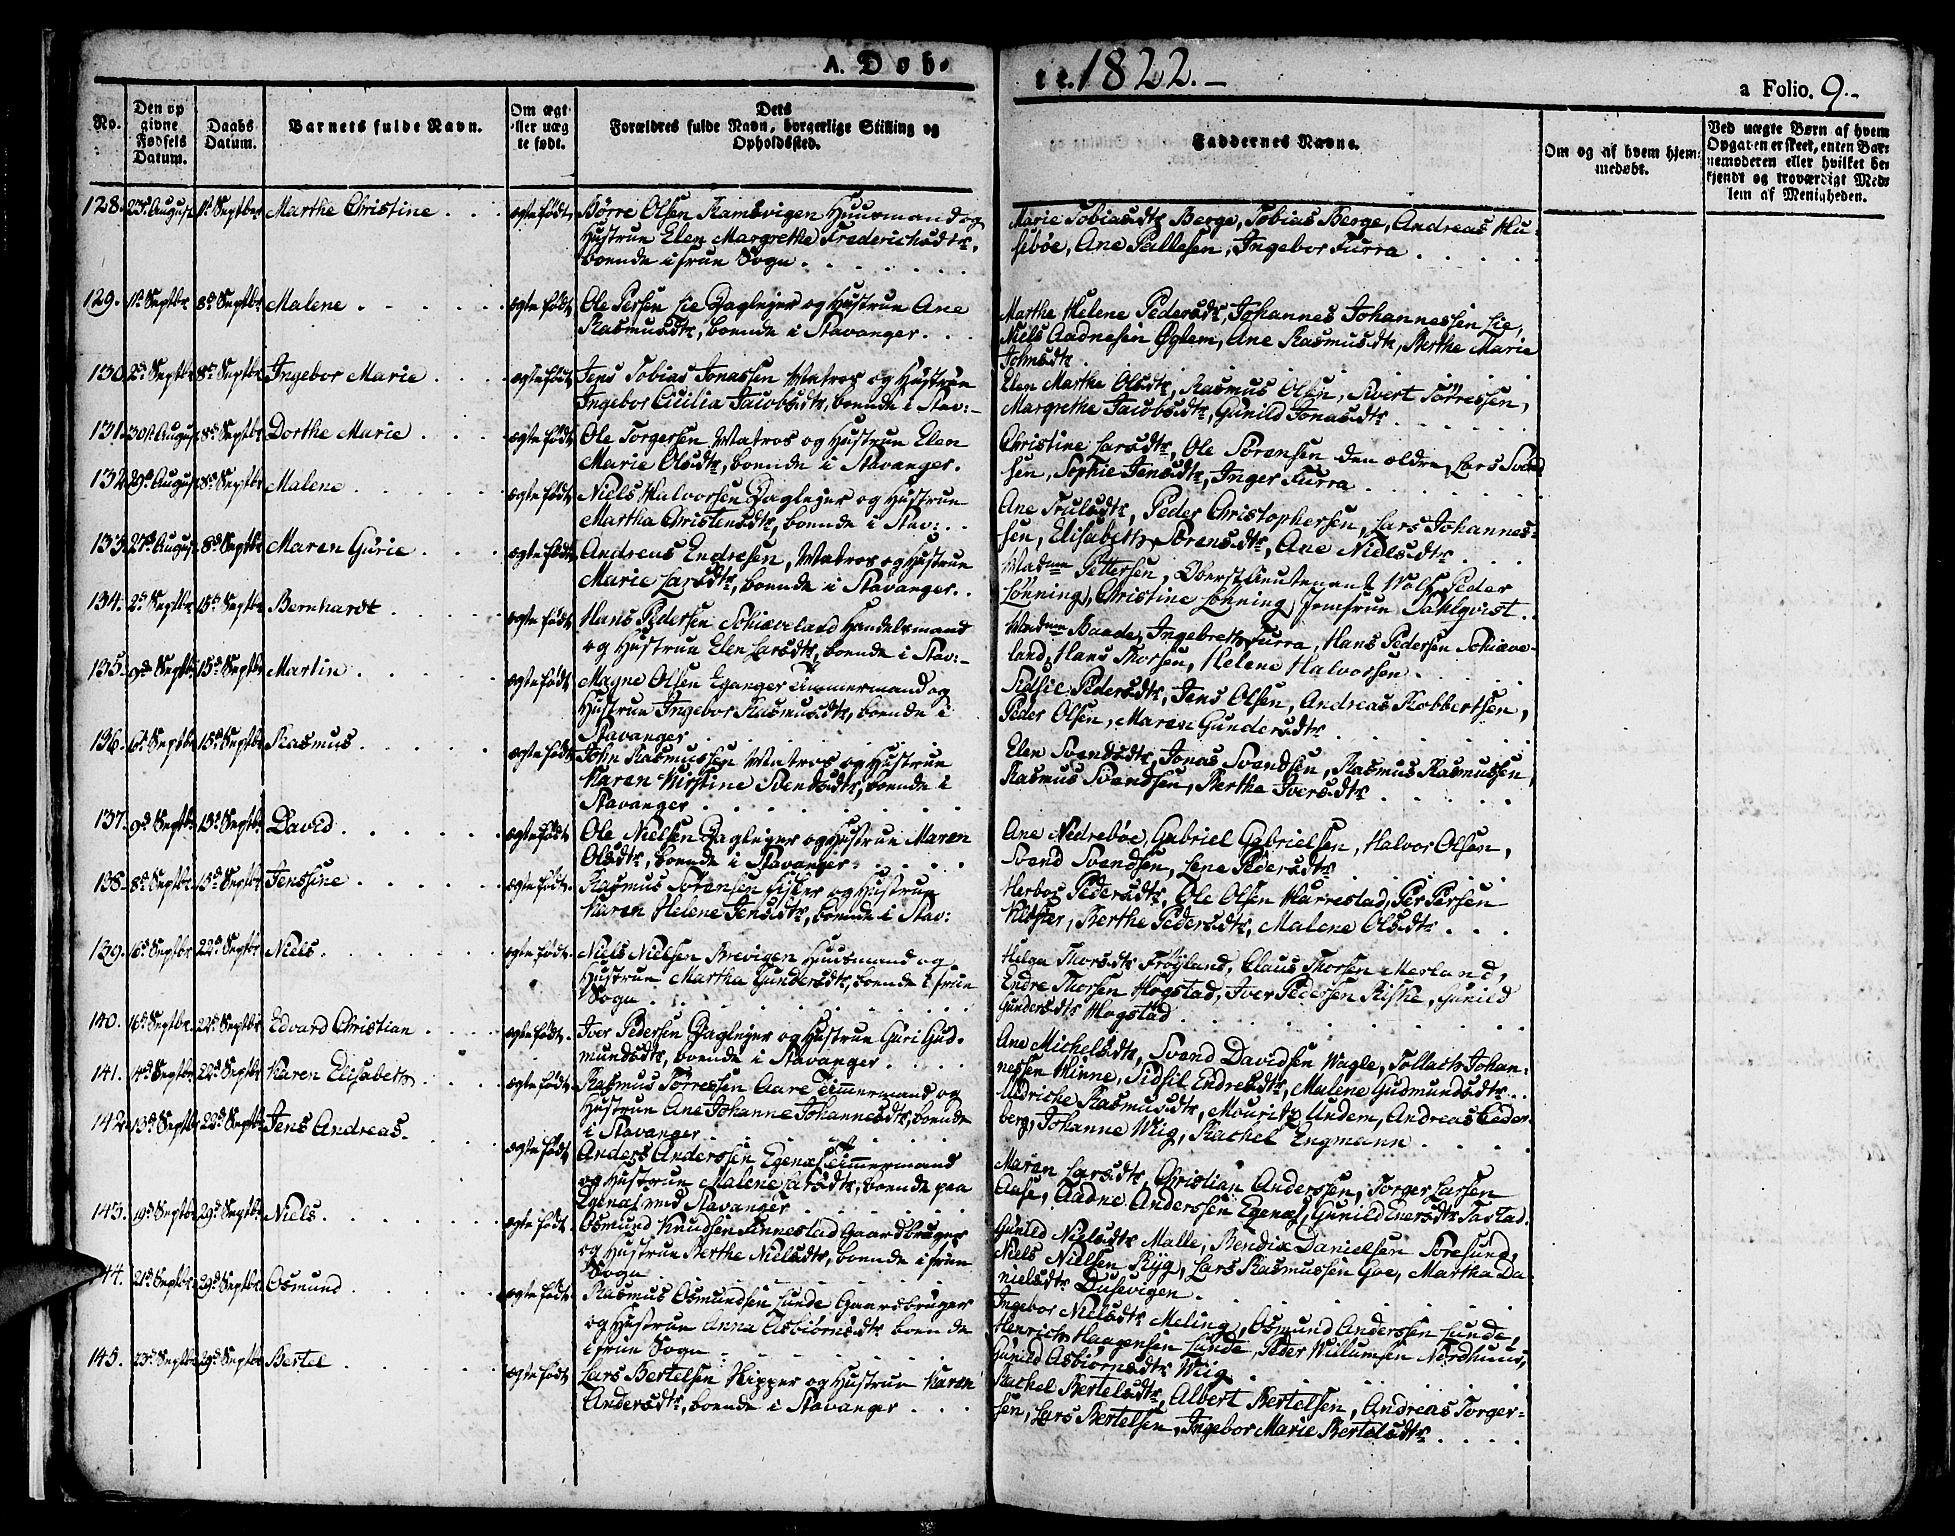 A. Døb-
te. 1822.-
a Folio. 9.-
No.
Den op
givne
Fødsels
Datum.
Daabs
Datum.
Barnets fulde Navn.
Om ægt
eller uæg
te født.
Dets
Forældres fulde Navn, borgerlige Stilling og
Opholdssted.
Faddernes Navne.
Om og af hvem hjem-
medøbt.
Ved uægte Børn af hvem
Opgaven er skeet, enten Bar-
nemoderen eller hvilket be-
kjendt og troværdigt Med-
lem af Menigheden.
128. 23de August 1ste Septber Marthe Christine ægtefødt Børre Olsen Ramsvigen Huusmand og
Hustrue Elen Margrethe Frederichsdtr,
boende i frue Sogn.
Marie Tobiasdtr Berge, Tobias Berge, Andreas Hu-
sebøe, Ane Pallesen, Ingebor Furra
129. 1ste Septbr 8de Septbr Malene ægtefødt Ole Persen Lie Dagleier og Hustrue Ane
Rasmusdtr, boende i Stavanger.
Marthe Helene Pedersdtr, Johannes Johannessen Lie,
Niels Aadnesen Øglem, Ane Rasmusdtr, Berthe Marie
Johnsdtr.
130. 2den Septbr 8de Septbr Ingebor Marie ægtefødt Jens Tobias Jonassen Matros og Hustrue
Ingebor Cicilia Jacobsdtr, boende i Stav:-
Elen Marthe Olsdtr, Rasmus Olsen, Sivert Tørressen,
Margrethe Jacobsdtr, Gunild Jonasdtr
131. 30te August 8de Septbr Dorthe Marie ægtefødt Ole Torgersen Matros og Hustrue Elen
Marie Olsdtr, boende i Stavanger.
Christine Larsdtr, Ole Sørensen den ældre, Lars Svend
sen, Sophie Jensdtr, Inger Furra
132. 29de August 8de Septbr Malene ægtefødt Niels Halvorsen Dagleier og Hustrue
Martha Christensdtr, boende i Stav:
Ane Trulsdtr, Peder Christophersen, Lars Johannes-
sen, Elisabeth Sørensdtr, Ane Nielsdtr
133. 27de August 8de Septbr Maren Gurie ægtefødt Andreas Endresen, Matros og Hustrue
Marie Larsdtr, boende i Stavanger.
Madme Pettersen, Oberstlieutenant Wolf, Peder
Lønning, Christine Lønning, Jomfrue Dahlqvist.
134. 2den Septbr 15de Septbr Bernhardt ægtefødt Hans Pedersen Schiæveland Handelsmand
og Hustrue Elen Larsdtr, boende i Stav:-
Madme Baade, Ingebreth Furra, Hans Pedersen Schiæve-
land, Hans Thorsen, Helene Halvorsen.
135. 9de Septbr 15de Septbr Martin ægtefødt Magne Olsen Eganger Tiimmermand og
Hustrue Ingebor Rasmusdtr, boende i
Stavanger
Sidsie Pedersdtr, Jens Olsen, Andreas Robbertsen,
Peder Olsen, Maren Gundersdtr
136. 6te Septbr 15de Septbr Rasmus ægtefødt John Rasmussen Matros og Hustrue
Karen Kirstine Svendsdtr, boende i
Stavanger
Elen Svendsdtr, Jonas Svendsen, Rasmus Rasmussen,
Rasmus Svendsen, Berthe Iversdtr
137. 9de Septbr 15de Septbr David ægtefødt Ole Nielsen Dagleier og Hustrue Maren
Olsdtr, boende i Stavanger.
Ane Nedrebøe, Gabriel Gabrielsen, Halvor Olsen,
Svend Svendsen, Lene Pedersdtr
138. 8de Septbr 15de Septbr Jenssine ægtefødt Rasmus Sørensen Fisker og Hustrue
Karen Helene Jensdtr, boende i Stav:
Herbor Pedersdtr, Ole Olsen Harrestad, Per Persen
Berthe Pedersdtr, Malene Olsdtr
139. 16de Septbr 22de Septbr Niels. ægtefødt Niels Nielsen Brevigen Huusmand og
Hustrue Martha Gundersdtr, boende i frue
Sogn
Helga Thorsdtr Frøyland, Claus Thorsen Merland,
Endre Thorsen Hogstad, Iver Pedersen Riske, Gunild
Gundersdtr Hogstad
140. 16de Septbr 22de Septbr Edvard Christian ægtefødt. Iver Pedersen Dagleier og Hustrue Guri Gud-
mundsdtr, boende i Stavanger
Ane Michelsdtr, Svend Davidsen Wagle, Tollach Johan-
nessen Hinne, Sidsil Endresdtr, Malene Gudmundsdtr
141. 14de Septbr 22de Septbr Karen Elisabeth ægtefødt Rasmus Tørressen Aare Tiimmermand og
Hustrue Ane Johanne Johannesdtr, boende
i Stavanger
Uldriche Rasmusdtr, Mouritz Undem, Andreas Ceder-
berg, Johanne Wiig, Rachel Engmann
142. 13de Septbr 22de Septbr Jens Andreas. ægtefødt Anders Anderssen Egenæs Tiimmermand
og Hustrue Malene Larsdtr, boende paa
Egenæs ved Stavanger
Maren Larsdtr, Christian Anderssen, Torger Larsen
Aase, Aadne Anderssen Egenæs, Gunild Enersdtr Tastad.
143. 19de Septbr 29de Septbr Niels. ægtefødt Osmund Knudsen Finnestad Gaardbruger
og Hustrue Berthe Nielsdtr, boende i frue
Sogn
Gunild Nielsdtr Malle, Bendix Danielsen Søresund,
Niels Nielsen Ryg, Lars Rasmussen Goe, Martha Da-
nielsdtr Dusevigen
144. 21de Septbr 29de Septbr Osmund ægtefødt. Rasmus Osmundsen Lunde Gaardbruger
og Hustrue Anna Asbiørnsdtr boende
i frue Sogn
Ingebor Nielsdtr Meling, Osmund Anderssen Lunde,
Henrich Haagensen Lunde, Peder Willumsen Nordhuus,
Gunild Asbiørnsdtr Wiig
145. 23de Septbr 29de Septbr Bertel ægtefødt Lars Bertelsen Kipper og Hustrue Karen
Andersdtr, boende i Stavanger
Rachel Bertelsdtr, Albert Bertelsen, Andreas Torger-
sen, Lars Bertelsen, Ingebor Marie Bertelsdtr